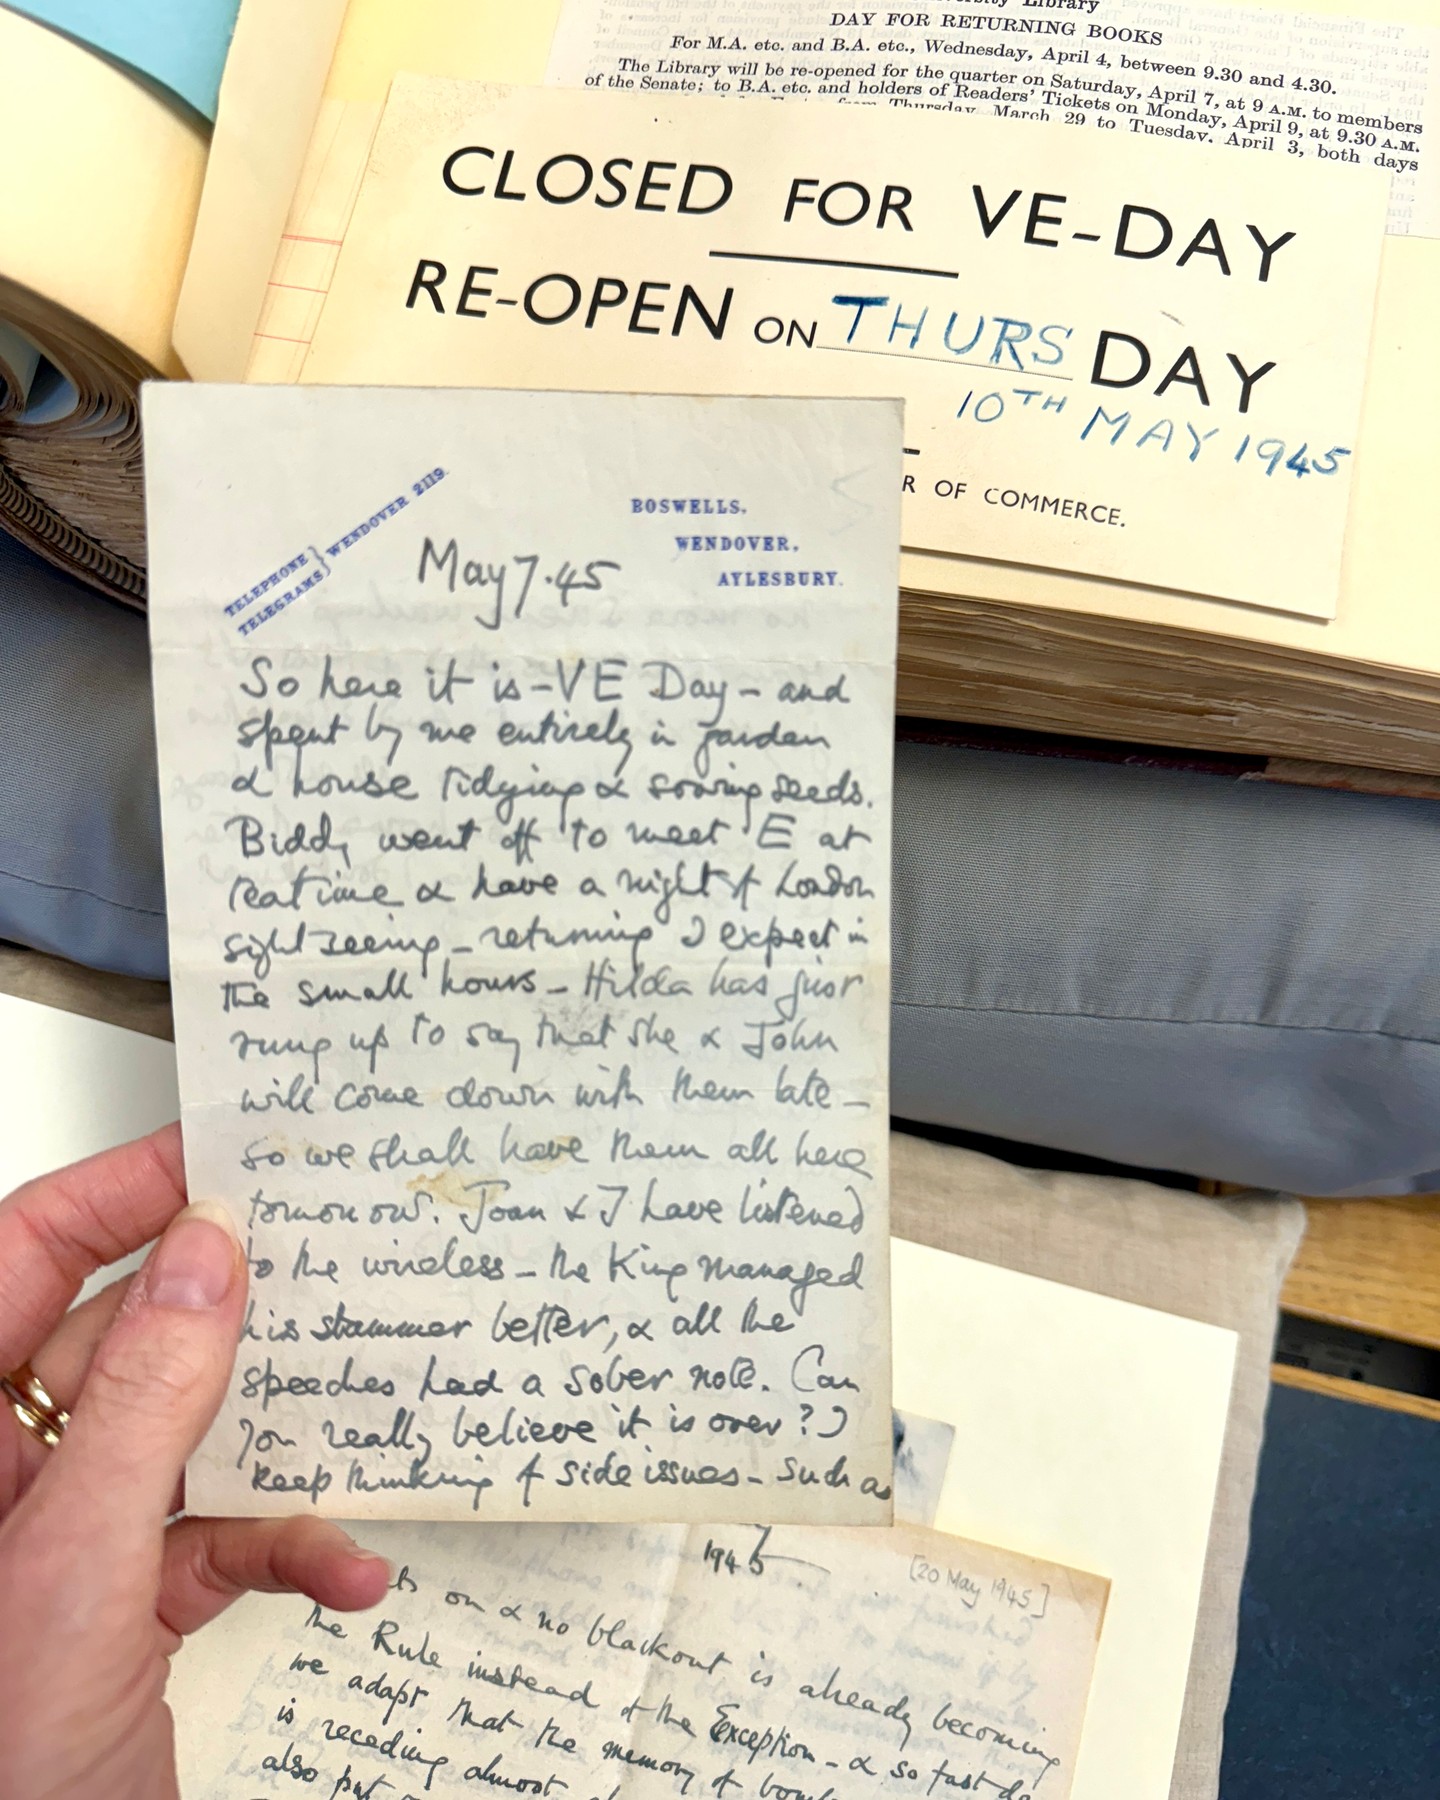 Library
DAY FOR RETURNING BOOKS
For M.A. etc. and B.A. etc., Wednesday, April 4, between 9.30 and 4.30.
The Library will be re-opened for the quarter on Saturday, April 7, at 9 A.M. to members
of the Senate; to B.A. etc. and holders of Readers' Tickets on Monday, April 9, at 9.30 A.M.
from Thursday, March 29 to Tuesday, April 3, both days
CLOSED FOR VE-DAY
RE-OPEN ON THURS DAY
10TH MAY 1945
R OF COMMERCE.
TELEPHONE
TELEGRAMS } WENDOVER 2119.
BOSWELLS,
WENDOVER,
AYLESBURY.
May 7.45
So here it is - VE Day - and
spent by me entirely in garden
& house tidying & sowing seeds.
Biddy went off to meet E at
teatime & have a night of London
sight seeing - returning I expect in
the small hours - Hilda has just
rung up to say that she & John
will come down with them late -
so we shall have them all here
tomorrow. Joan & I have listened
to the wireless - the King managed
his stammer better, & all the
speeches had a sober note. Can
you really believe it is over? I
keep thinking of side issues - such as
1945
[20 May 1945]
on & no blackout is already becoming
the Rule instead of the Exception - & so fast do
we adapt that the memory of
is receding almost
also put